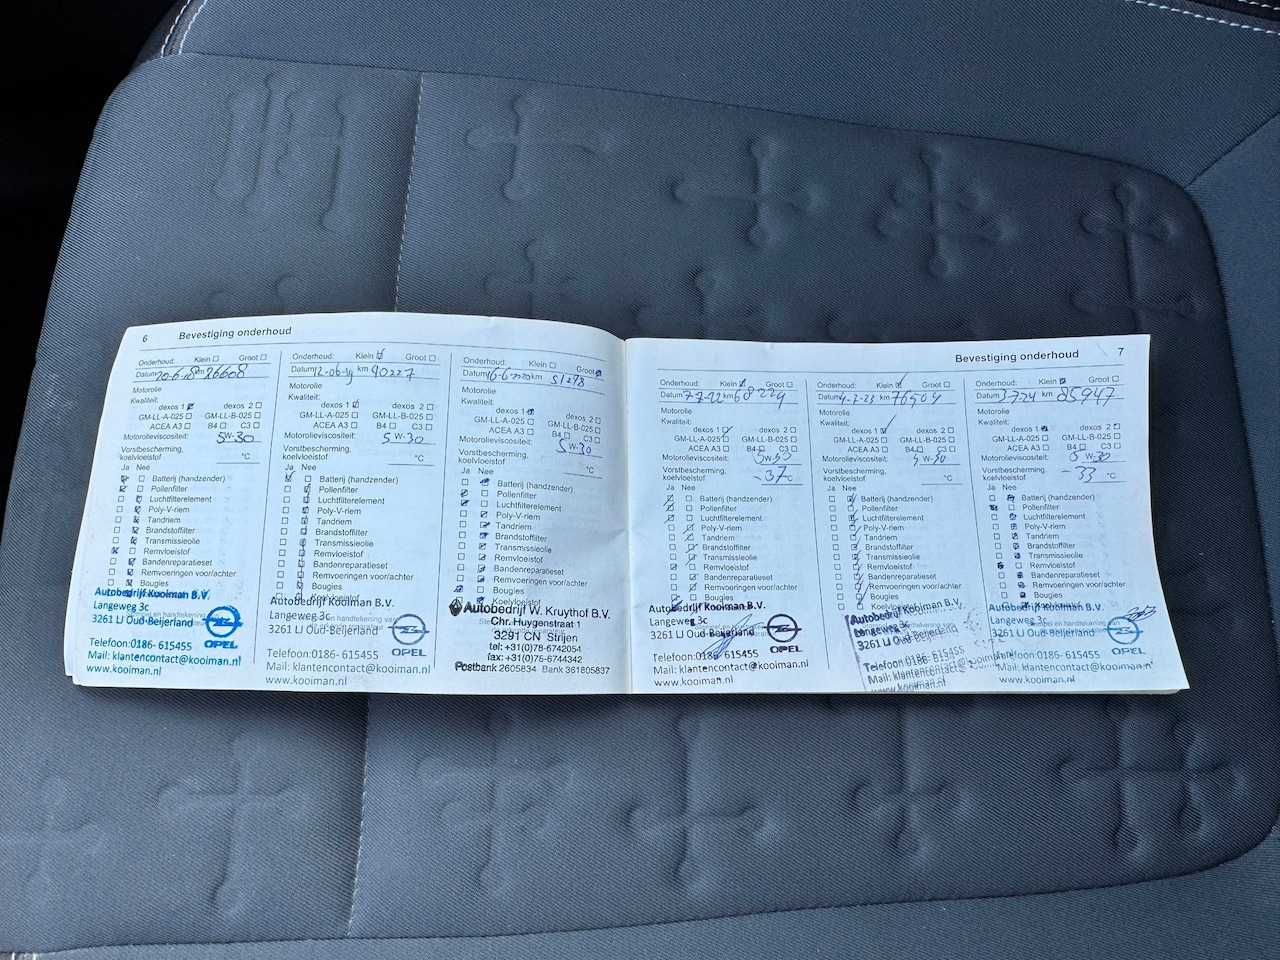 6 Bevestiging onderhoud
Onderhoud: Klein Groot
Datum 20-6-18 km 26608
Motorolie
Kwaliteit:
dexos 1 dexos 2
GM-LL-A-025 GM-LL-B-025
ACEA A3 B4 C3
Motorolieviscositeit: 5W-30
Vorstbescherming,
koelvloeistof °C
Ja Nee
Batterij (handzender)
Pollenfilter
Luchtfilterelement
Poly-V-riem
Tandriem
Brandstoffilter
Transmissieolie
Remvloeistof
Bandenreparatieset
Remvoeringen voor/achter
Bougies
Autobedrijf Kooiman B.V.
Langeweg 3c
3261 LJ Oud-Beijerland
OPEL
Telefoon:0186- 615455
Mail: klantencontact@kooiman.nl
www.kooiman.nl
Onderhoud: Klein Groot
Datum 12-06-19 km 40227
Motorolie
Kwaliteit:
dexos 1 dexos 2
GM-LL-A-025 GM-LL-B-025
ACEA A3 B4 C3
Motorolieviscositeit: 5W-30
Vorstbescherming,
koelvloeistof °C
Ja Nee
Batterij (handzender)
Pollenfilter
Luchtfilterelement
Poly-V-riem
Tandriem
Brandstoffilter
Transmissieolie
Remvloeistof
Bandenreparatieset
Remvoeringen voor/achter
Bougies
Koelvloeistof
Autobedrijf Kooiman B.V.
Langeweg 3c
3261 LJ Oud-Beijerland
OPEL
Telefoon:0186- 615455
Mail: klantencontact@kooiman.nl
www.kooiman.nl
Onderhoud: Klein Groot
Datum 16-6-2020 km 51278
Motorolie
Kwaliteit:
dexos 1 dexos 2
GM-LL-A-025 GM-LL-B-025
ACEA A3 B4 C3
Motorolieviscositeit: 5W-30
Vorstbescherming,
koelvloeistof °C
Ja Nee
Batterij (handzender)
Pollenfilter
Luchtfilterelement
Poly-V-riem
Tandriem
Brandstoffilter
Transmissieolie
Remvloeistof
Bandenreparatieset
Remvoeringen voor/achter
Bougies
Koelvloeistof
Autobedrijf W. Kruythof B.V.
Chr. Huygenstraat 1
3291 CN Strijen
tel: +31(0)78-6742054
fax: +31(0)78-6744342
Postbank 2605834 Bank 361805837
Bevestiging onderhoud 7
Onderhoud: Klein Groot
Datum 7-7-22 km 68224
Motorolie
Kwaliteit:
dexos 1 dexos 2
GM-LL-A-025 GM-LL-B-025
ACEA A3 B4 C3
Motorolieviscositeit:
Vorstbescherming,
koelvloeistof -37 °C
Ja Nee
Batterij (handzender)
Pollenfilter
Luchtfilterelement
Poly-V-riem
Tandriem
Brandstoffilter
Transmissieolie
Remvloeistof
Bandenreparatieset
Remvoeringen voor/achter
Bougies
Autobedrijf Kooiman B.V.
Langeweg 3c
3261 LJ Oud-Beijerland
OPEL
Telefoon:0186- 615455
Mail: klantencontact@kooiman.nl
www.kooiman.nl
Onderhoud: Klein Groot
Datum km 76504
Motorolie
Kwaliteit:
dexos 1 dexos 2
GM-LL-A-025 GM-LL-B-025
ACEA A3 B4 C3
Motorolieviscositeit: 5W-30
Vorstbescherming,
koelvloeistof °C
Ja Nee
Batterij (handzender)
Pollenfilter
Luchtfilterelement
Poly-V-riem
Tandriem
Brandstoffilter
Transmissieolie
Remvloeistof
Bandenreparatieset
Remvoeringen voor/achter
Bougies
Koelvloeistof
Autobedrijf Kooiman B.V.
Langeweg 3c
3261 LJ Oud-Beijerland
Telefoon:0186- 615455
Mail: klantencontact@kooiman.nl
www.kooiman.nl
Onderhoud: Klein Groot
Datum km 85947
Motorolie
Kwaliteit:
dexos 1 dexos 2
GM-LL-A-025 GM-LL-B-025
ACEA A3 B4 C3
Motorolieviscositeit: 5W-30
Vorstbescherming,
koelvloeistof -33 °C
Ja Nee
Batterij (handzender)
Pollenfilter
Luchtfilterelement
Poly-V-riem
Tandriem
Brandstoffilter
Transmissieolie
Remvloeistof
Bandenreparatieset
Remvoeringen voor/achter
Bougies
Autobedrijf Kooiman B.V.
Langeweg 3c
3261 LJ Oud-Beijerland
OPEL
Telefoon:0186- 615455
Mail: klantencontact@kooiman.nl
www.kooiman.nl